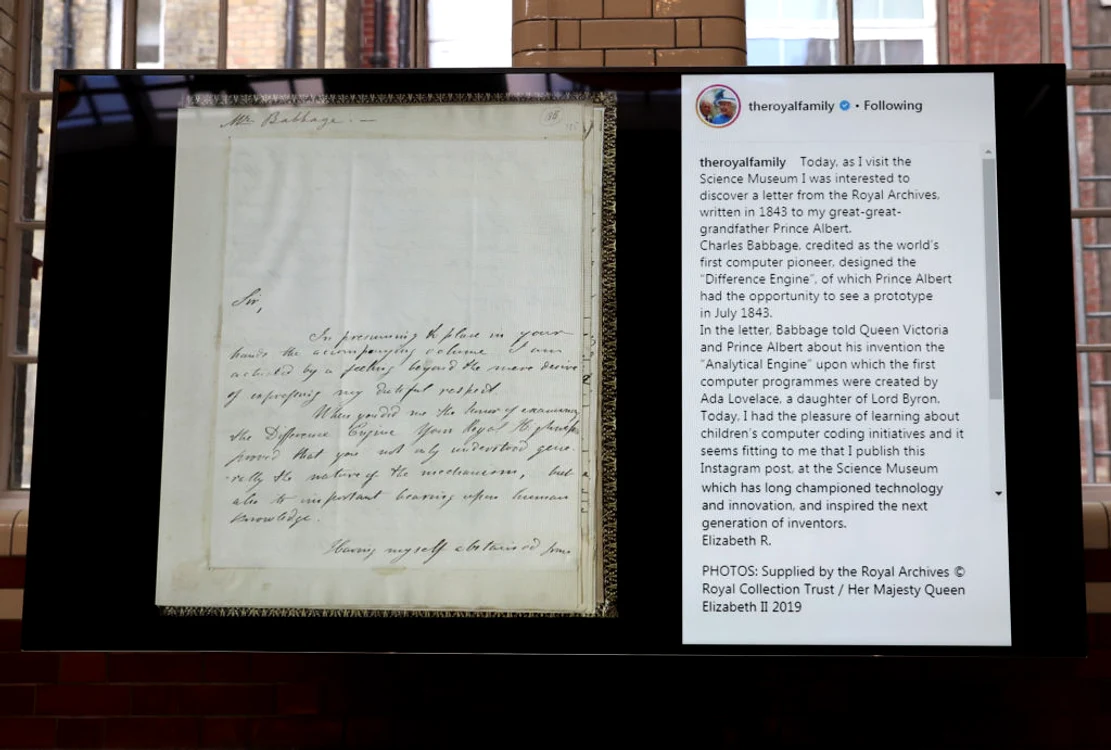 Mr Babbage. —
Sir,
In presuming to place in your
hands the accompanying volume I am
actuated by a feeling beyond the mere desire
of expressing my dutiful respect.
When you did me the honor of examining
the Difference Engine Your Royal Highness
proved that you not only understood gene-
-rally the nature of the mechanism, but
also its important bearing upon human
knowledge.
Having myself abstained from
theroyalfamily • Following
theroyalfamily Today, as I visit the
Science Museum I was interested to
discover a letter from the Royal Archives,
written in 1843 to my great-great-
grandfather Prince Albert.
Charles Babbage, credited as the world's
first computer pioneer, designed the
"Difference Engine", of which Prince Albert
had the opportunity to see a prototype
in July 1843.
In the letter, Babbage told Queen Victoria
and Prince Albert about his invention the
"Analytical Engine" upon which the first
computer programmes were created by
Ada Lovelace, a daughter of Lord Byron.
Today, I had the pleasure of learning about
children's computer coding initiatives and it
seems fitting to me that I publish this
Instagram post, at the Science Museum
which has long championed technology
and innovation, and inspired the next
generation of inventors.
Elizabeth R.
PHOTOS: Supplied by the Royal Archives ©
Royal Collection Trust / Her Majesty Queen
Elizabeth II 2019